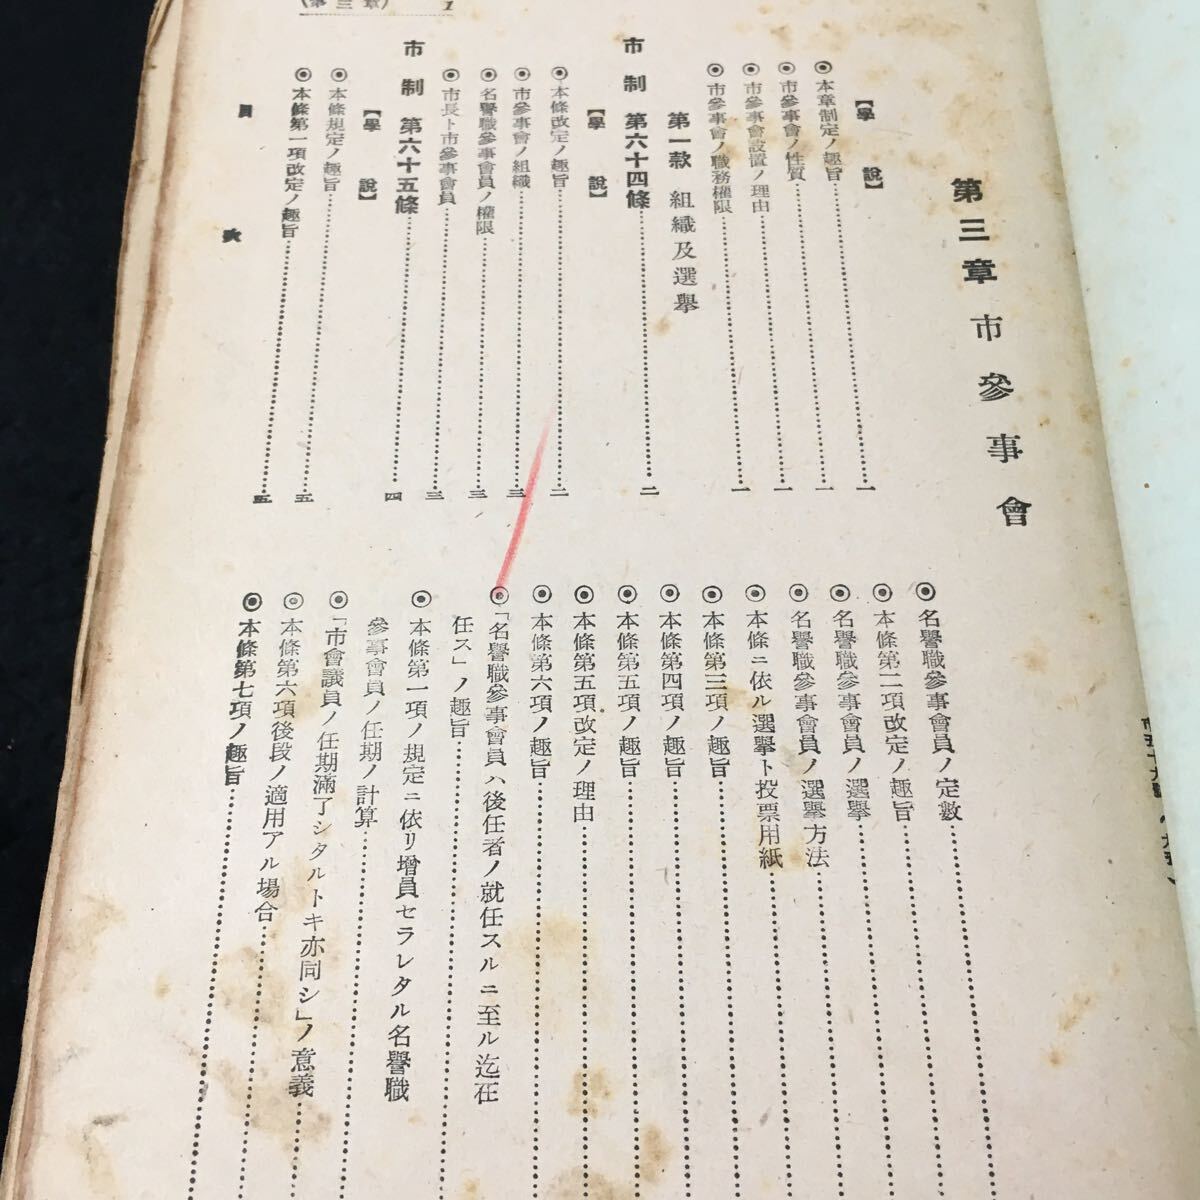 第三章 市參事會
【學說】
◉本章制定ノ趣旨……一
◉市參事會ノ性質……一
◉市參事會設置ノ理由……一
◉市參事會ノ職務權限……一
第一款 組織及選擧
市制 第六十四條……二
【學說】
◉本條改定ノ趣旨……二
◉市參事會ノ組織……三
◉名譽職參事會員ノ權限……三
◉市長ト市參事會員……三
市制 第六十五條……四
【學說】
◉本條規定ノ趣旨……五
◉本條第一項改定ノ趣旨……五
◉名譽職參事會員ノ定數……
◉本條第二項改定ノ趣旨……
◉名譽職參事會員ノ選擧……
◉名譽職參事會員ノ選擧方法……
◉本條ニ依ル選擧ト投票用紙……
◉本條第三項ノ趣旨……
◉本條第四項ノ趣旨……
◉本條第五項ノ趣旨……
◉本條第五項改定ノ理由……
◉本條第六項ノ趣旨……
◉「名譽職參事會員ハ後任者ノ就任スルニ至ル迄在
任ス」ノ趣旨……
◉本條第一項ノ規定ニ依リ增員セラレタル名譽職
參事會員ノ任期ノ計算……
◉「市會議員ノ任期滿了シタルトキ亦同シ」ノ意義
◉本條第六項後段ノ適用アル場合……
◉本條第七項ノ趣旨……
目次
(第三章) 1